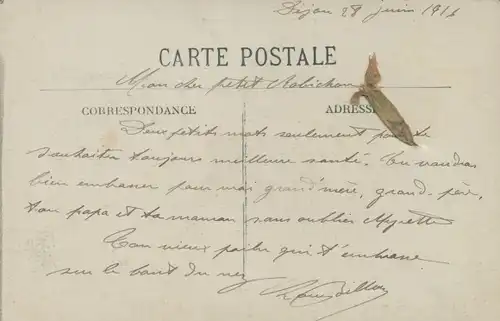 Dijon 28 juin 1916
CARTE POSTALE
Mon cher petit
CORRESPONDANCE
ADRESSE
Deux petits mots seulement pour te
souhaiter toujours meilleure santé. Tu voudras
bien embrasser pour moi grand'mère, grand-père,
ton papa et ta maman sans oublier
Ton vieux poilu qui t'embrasse
sur le bout du nez